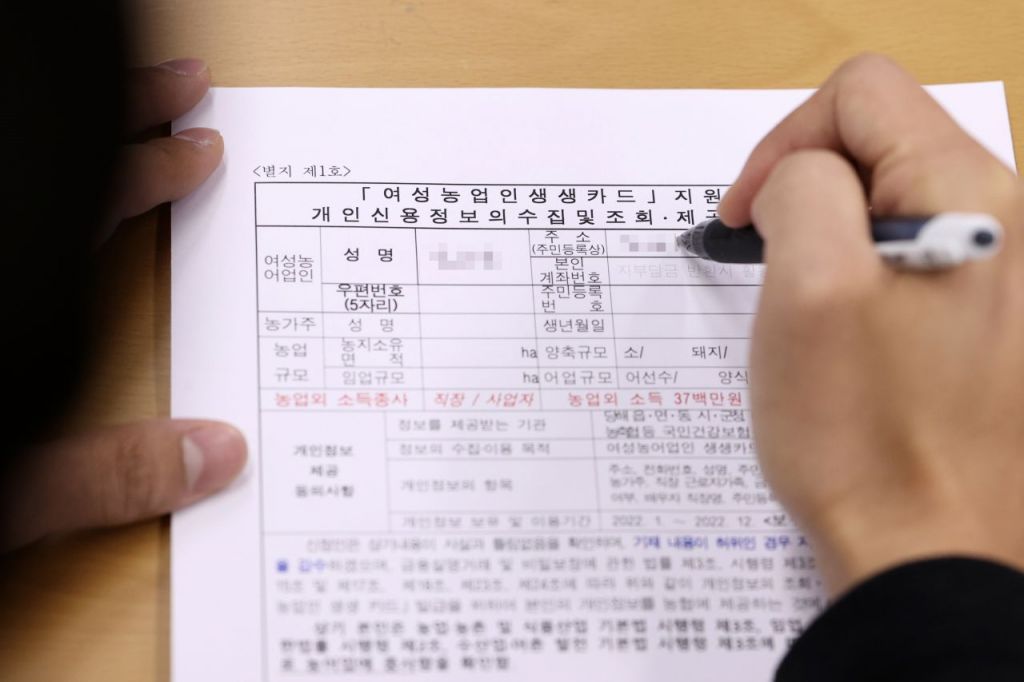 <별지 제1호>
「여성농업인생생카드」지원
개인신용정보의수집및조회·제공
여성농어업인 성 명 주 소 (주민등록상)
본인 계좌번호 자부담금 반환시
우편번호 (5자리) 주민등록번 호
농가주 성 명 생년월일
농업 규모 농지소유 면 적 ha 양축규모 소/ 돼지/
임업규모 ha 어업규모 어선수/ 양식
농업외 소득종사 직장 / 사업자 농업외 소득 37백만원
개인정보 제공 동의사항 정보를 제공받는 기관 읍·면·동, 시·군
농협등 국민건강보험
정보의 수집·이용 목적 여성농어업인 생생카드
개인정보의 항목 주소, 전화번호, 성명,
농가주, 직장 근로자가족,
여부, 배우자 직장명, 주민등록
개인정보 보유 및 이용기간 2022. 1. ~ 2022. 12.
신청인은 상기내용이 사실과 틀림없음을 확인하며, 기재 내용이 허위인 경우
을 감수하겠으며, 금융실명거래 및 비밀보장에 관한 법률 제3조, 시행령 제3조
에 따라 위와 같이 개인정보의 조회·
농업인 생생 카드」발급을 위하여 본인의 개인정보를 농협에 제공하는 것에
상기 본인은 농업·농촌 및 식품산업 기본법 시행령 제3조, 임업
시행령 제2조, 수산업·어촌 발전 기본법 시행령 제3조에